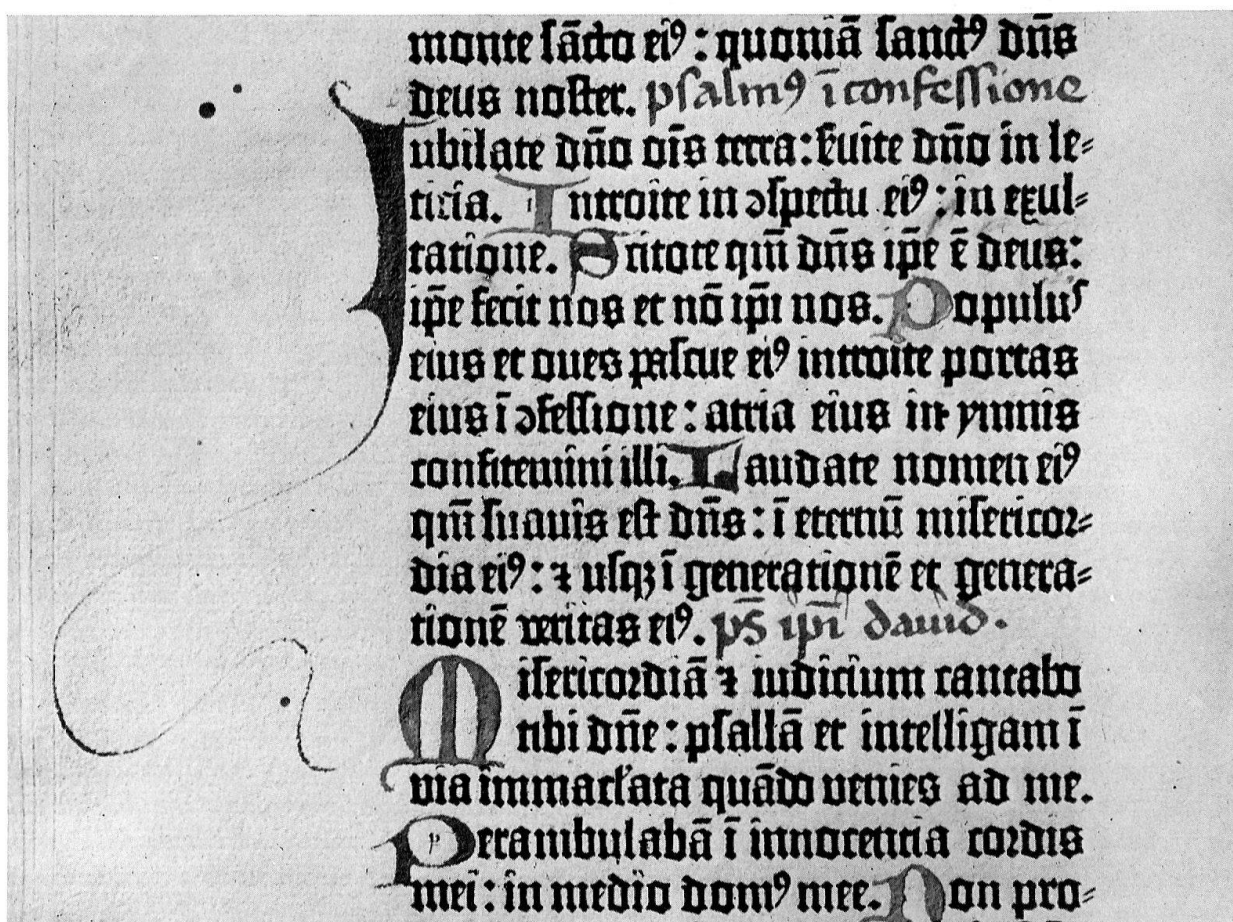 monte sācto eiꝰ : quoniā sanctꝰ dn̄s
deus noster. psalmꝰ ī confessione
Jubilate dn̄o oīs terra: s̄uite dn̄o in le⸗
ticia. Introite in ɔspectu eiꝰ : in exul⸗
tatione. Scitote qm̄ dn̄s ip̄e ē deus:
ip̄e fecit nos et nō ip̄i nos. Populus
eius et oues pascue eiꝰ introite portas
eius ī ɔfessione : atria eius in ymnis
confitemini illi. Laudate nomen eiꝰ
qm̄ suauis est dn̄s : ī eternū misericor⸗
dia eiꝰ : ⁊ usqꝫ ī generationē et genera⸗
tionē veritas eiꝰ. ps̄ ip̄i dauid.
Misericordiā ⁊ iudicium cantabo
tibi dn̄e : psallā et intelligam ī
via immac̄lata quādo venies ad me.
Perambulabā ī innocentia cordis
mei : in medio domꝰ mee. Non pro⸗